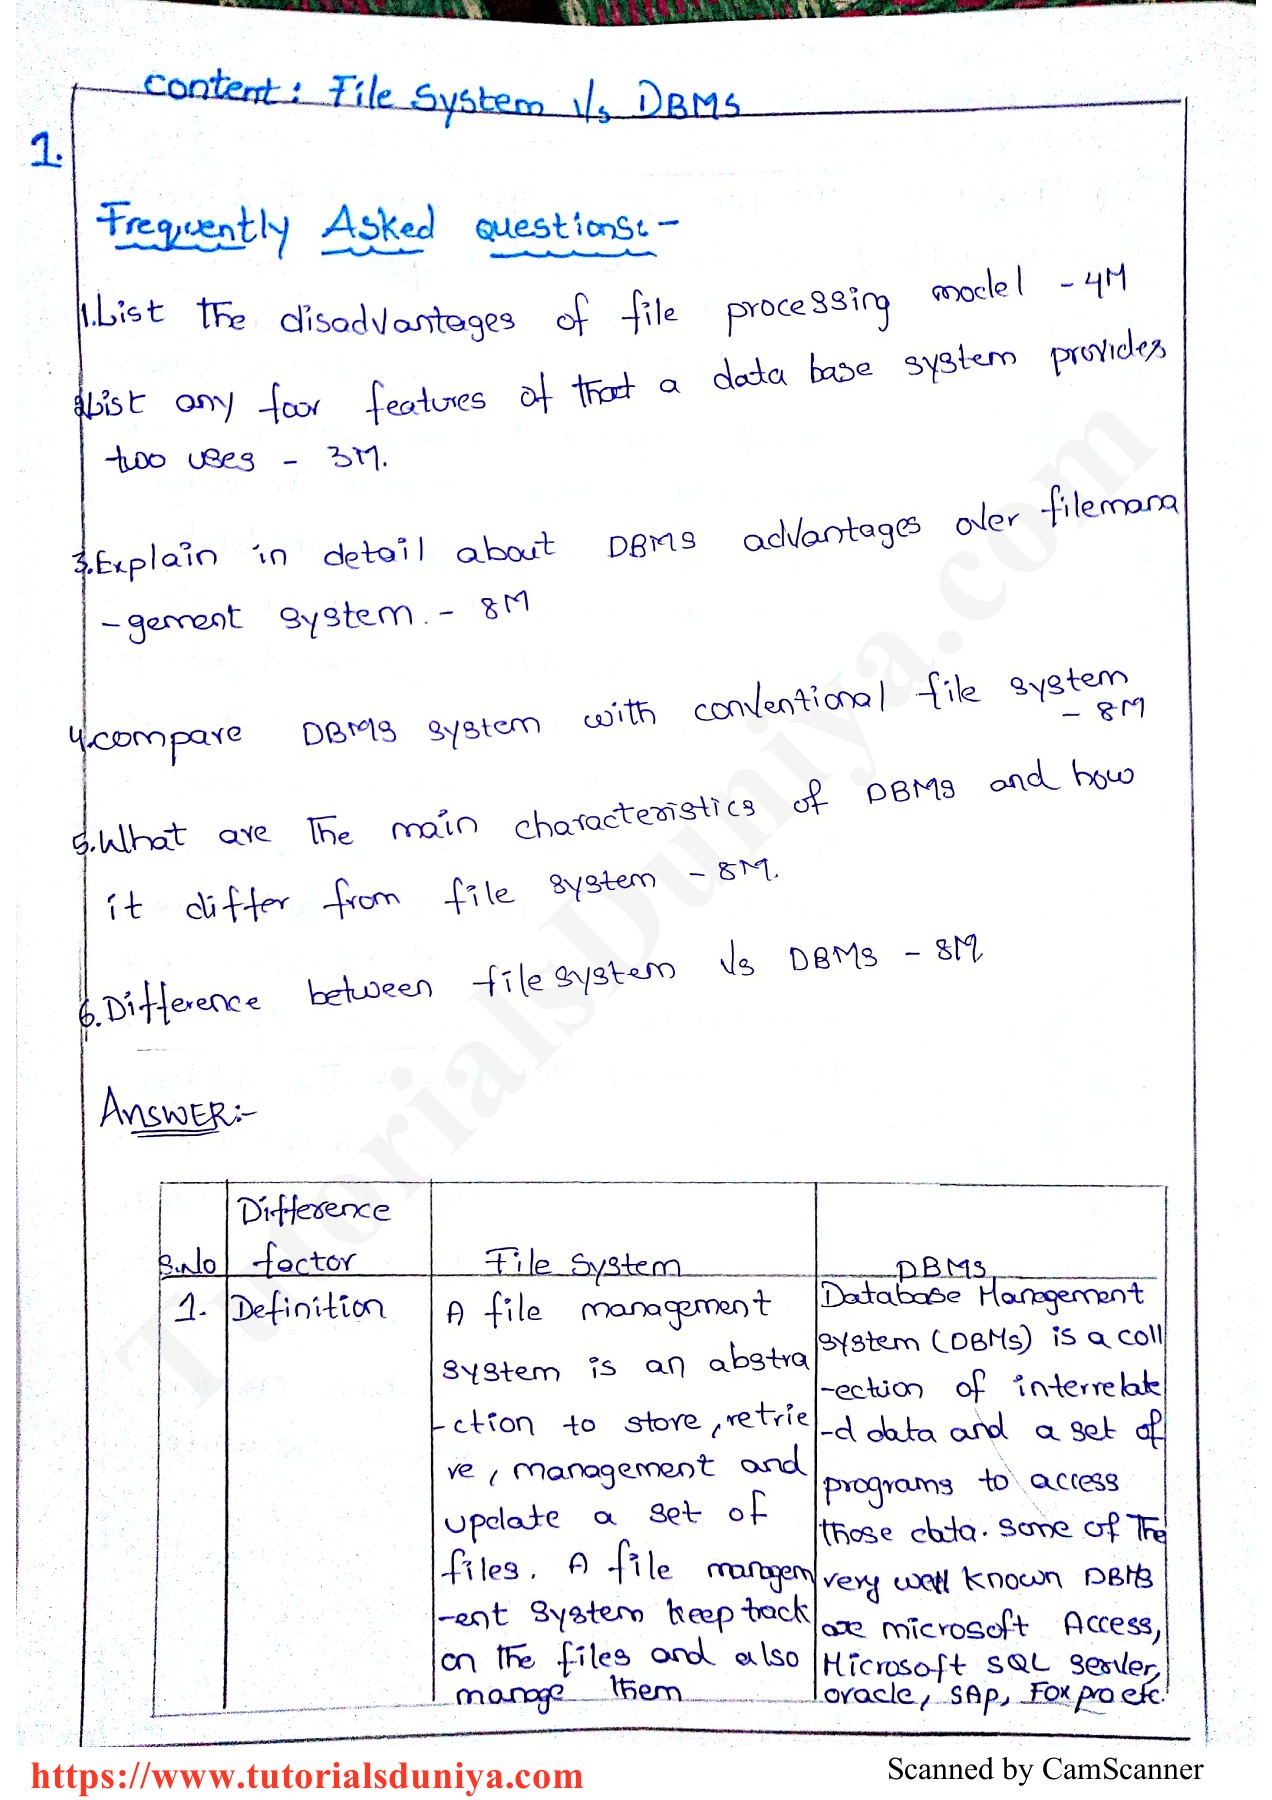 content: File System v/s DBMS
1.
Frequently Asked questions:-
1.List the disadvantages of file processing model - 4M
2.List any four features of that a data base system provides
too uses - 3M.
3.Explain in detail about DBMS advantages over filemana
-gement system. - 8M
4.compare DBMS system with conventional file system
- 8M
5.What are the main characteristics of DBMS and how
it differ from file system - 8M.
6.Difference between file system v/s DBMS - 8M
ANSWER:-
Difference
S.No factor File System DBMS
1. Definition
A file management
system is an abstra
-ction to store, retrie
ve, management and
update a set of
files. A file managem
-ent system keep track
on the files and also
manage them
Database Management
system (DBMS) is a coll
-ection of interrelate
-d data and a set of
programs to access
those data. some of the
very well known DBMS
are microsoft Access,
Microsoft SQL server,
oracle, SAP, Foxpro etc.
TutorialsDuniya.com
https://www.tutorialsduniya.com
Scanned by CamScanner